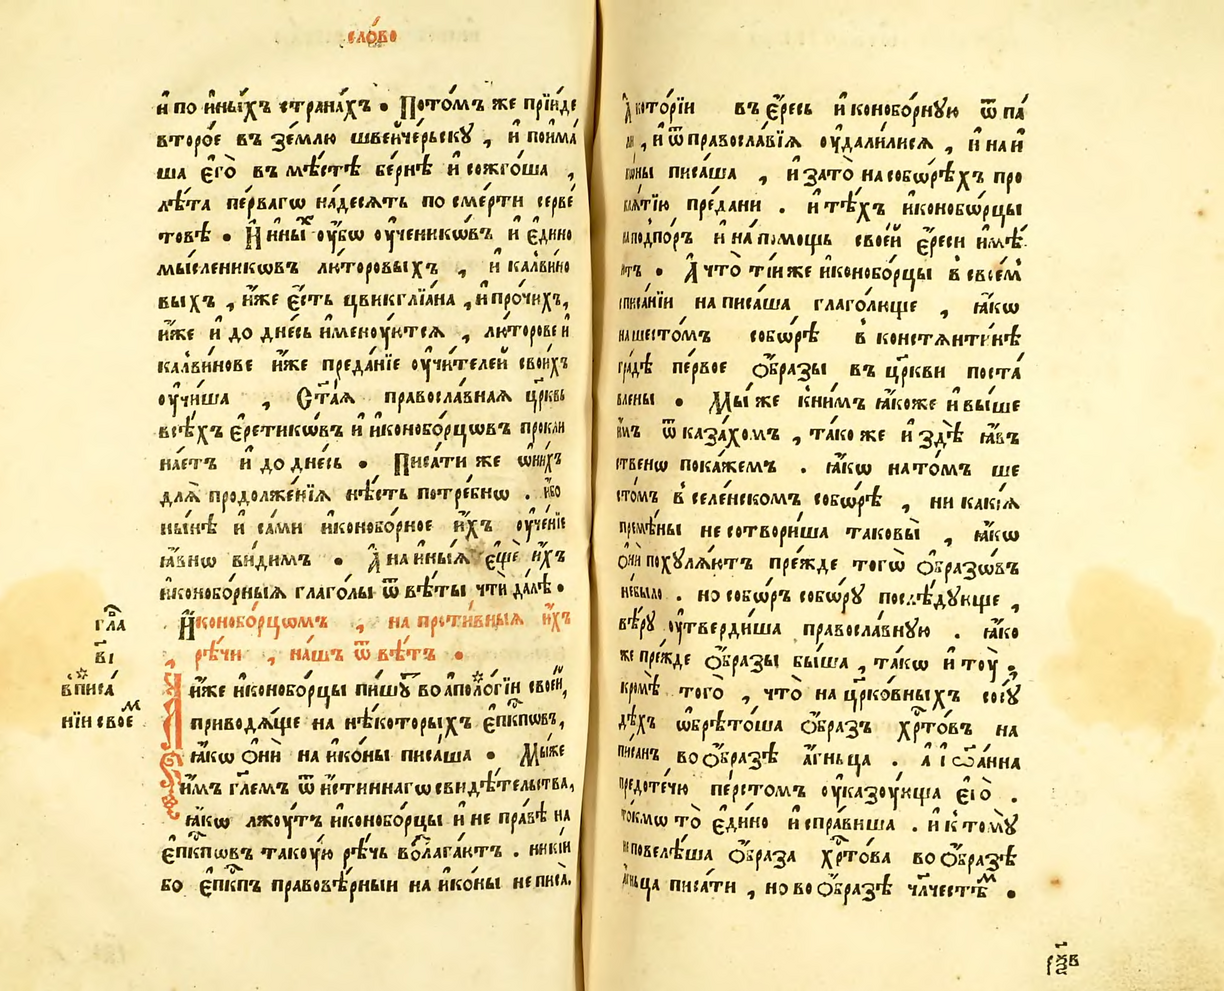 сло́во
и҆ по и҆ны́хъ страна́хъ . Пото́мъ же прїи́де
второ́е въ зе́млю швейче́рьскꙋ , и҆ пои́ма
ша є҆го̀ въ мѣ́стѣ бе́рнѣ и҆ сожго́ша ,
лѣ́та пе́рвагѡ на́десять по сме́рти серве
товѣ . И҆ ины́ ᲂу҆́бѡ ᲂу҆ченикѡ́въ и҆ є҆дино
мы́сленикѡвъ лю́торовыхъ , и҆ калви́но
выхъ , и҆́же є҆́сть цвикглїа́на , и҆ про́чихъ ,
и҆́же и҆ до дне́сь и҆менꙋ́ютсѧ , лю́торове и҆
калви́нове и҆́же преда́нїе ᲂу҆чи́телей свои́хъ
ᲂу҆чи́ша , Ст҃а́ѧ правосла́внаѧ цр҃квь
всѣ́хъ є҆ретикѡ́въ и҆ и҆конобо́рцѡвъ прокли
на́етъ и҆ до дне́сь . Писа́ти же ѡ҆ни́хъ
длѧ̀ продолже́нїѧ нѣ́сть потре́бнѡ . и҆́бо
ны́нѣ и҆ са́ми и҆конобо́рное и҆́хъ ᲂу҆че́нїе
ꙗ҆́внѡ ви́димъ . А҆ на и҆ны́ѧ є҆щѐ и҆́хъ
и҆конобо́рныѧ глаго́лы ѿвѣ́ты чтѝ да́лѣ .
И҆конобо́рцомъ , на проти́вныѧ и҆́хъ
рѣ́чи , на́шъ ѿвѣ́тъ .
гла
в҃і
в писа́
нїи свое м
А҆ и҆́же и҆конобо́рцы пи́шꙋт во аполо́гїи свое́й ,
приводѧ́ще на нѣ́которыхъ є҆пкпѡвъ ,
ꙗ҆́кѡ ѻ҆нѝ на и҆ко́ны писа́ша . Мы́же
и҆̀мъ гл҃емъ ѿ и҆́стиннагѡ свидѣ́тельства ,
ꙗ҆́кѡ лжꙋ́тъ и҆конобо́рцы и҆ не пра́вѣ на
є҆пкпѡвъ такову́ю рѣ́чь возлага́ютъ . никі́й
бо є҆пкпъ правовѣ́рныи на и҆ко́ны не писа̀.
А҆ кото́рїи въ є҆́ресь и҆коноборную ѿпа́
ли , и҆ ѿ правосла́вїѧ ᲂу҆дали́лисѧ , и҆ на и҆
ко́ны писа́ша , и҆ зато̀ на собѡ́рѣхъ про
клѧ́тїю пре́дани . и҆ тѣ́хъ и҆конобѡ́рцы
на подпо́ръ и҆ на по́мощь свое́й є҆́реси и҆мѣ́
ютъ . А҆ что̀ ті́и же и҆конобо́рцы в свое́м
списа́нїи на писа́ша глаго́люще , ꙗ҆́кѡ
на шесто́мъ собѡ́рѣ в константи́нѣ
гра́дѣ первое ѻ҆́бразы въ цр҃кви поста́
влены . Мы́ же к ни́мъ ꙗ҆́коже и҆ вы́ше
и҆́мъ ѿказа́хомъ , та́коже и҆ здѣ̀ ꙗ҆́въ
ственѡ пока́жемъ . ꙗ҆́кѡ на то́мъ ше
сто́мъ в селе́нскомъ собѡ́рѣ , ни какі́ѧ
премѣ́ны не сотвори́ша таковы̀ , ꙗ҆́кѡ
ѻ҆нѝ похꙋлѧ́ютъ пре́жде тогѡ̀ ѻ҆́бразѡвъ
не́было . но собѡ́ръ собѡ́рꙋ послѣ́дꙋюще ,
вѣ́рꙋ ᲂу҆тверди́ша правосла́внꙋю . ꙗ҆́ко
же пре́жде ѻ҆́бразы бы́ша , та́кѡ и҆ тꙋ̀ ,
кромѣ̀ того̀ , что̀ на цр҃ко́вныхъ сосꙋ́
дѣхъ ѡ҆брѣто́ша ѻ҆́бразъ хр҃то́въ на
пи́санъ во ѻ҆́бразѣ а҆́гньца . А҆ і҆ѡа́нна
предоте́чю пе́рстомъ ᲂу҆казꙋ́юща є҆го̀ .
то́кмѡ то̀ є҆ди́но и҆спра́виша . и҆ к томꙋ̀
не повелѣ́ша ѻ҆́браза хр҃то́ва во ѻ҆́бразѣ
а҆́гньца писа́ти , но во ѻ҆́бразѣ чл҃честѣ́м .
р҃ѯв